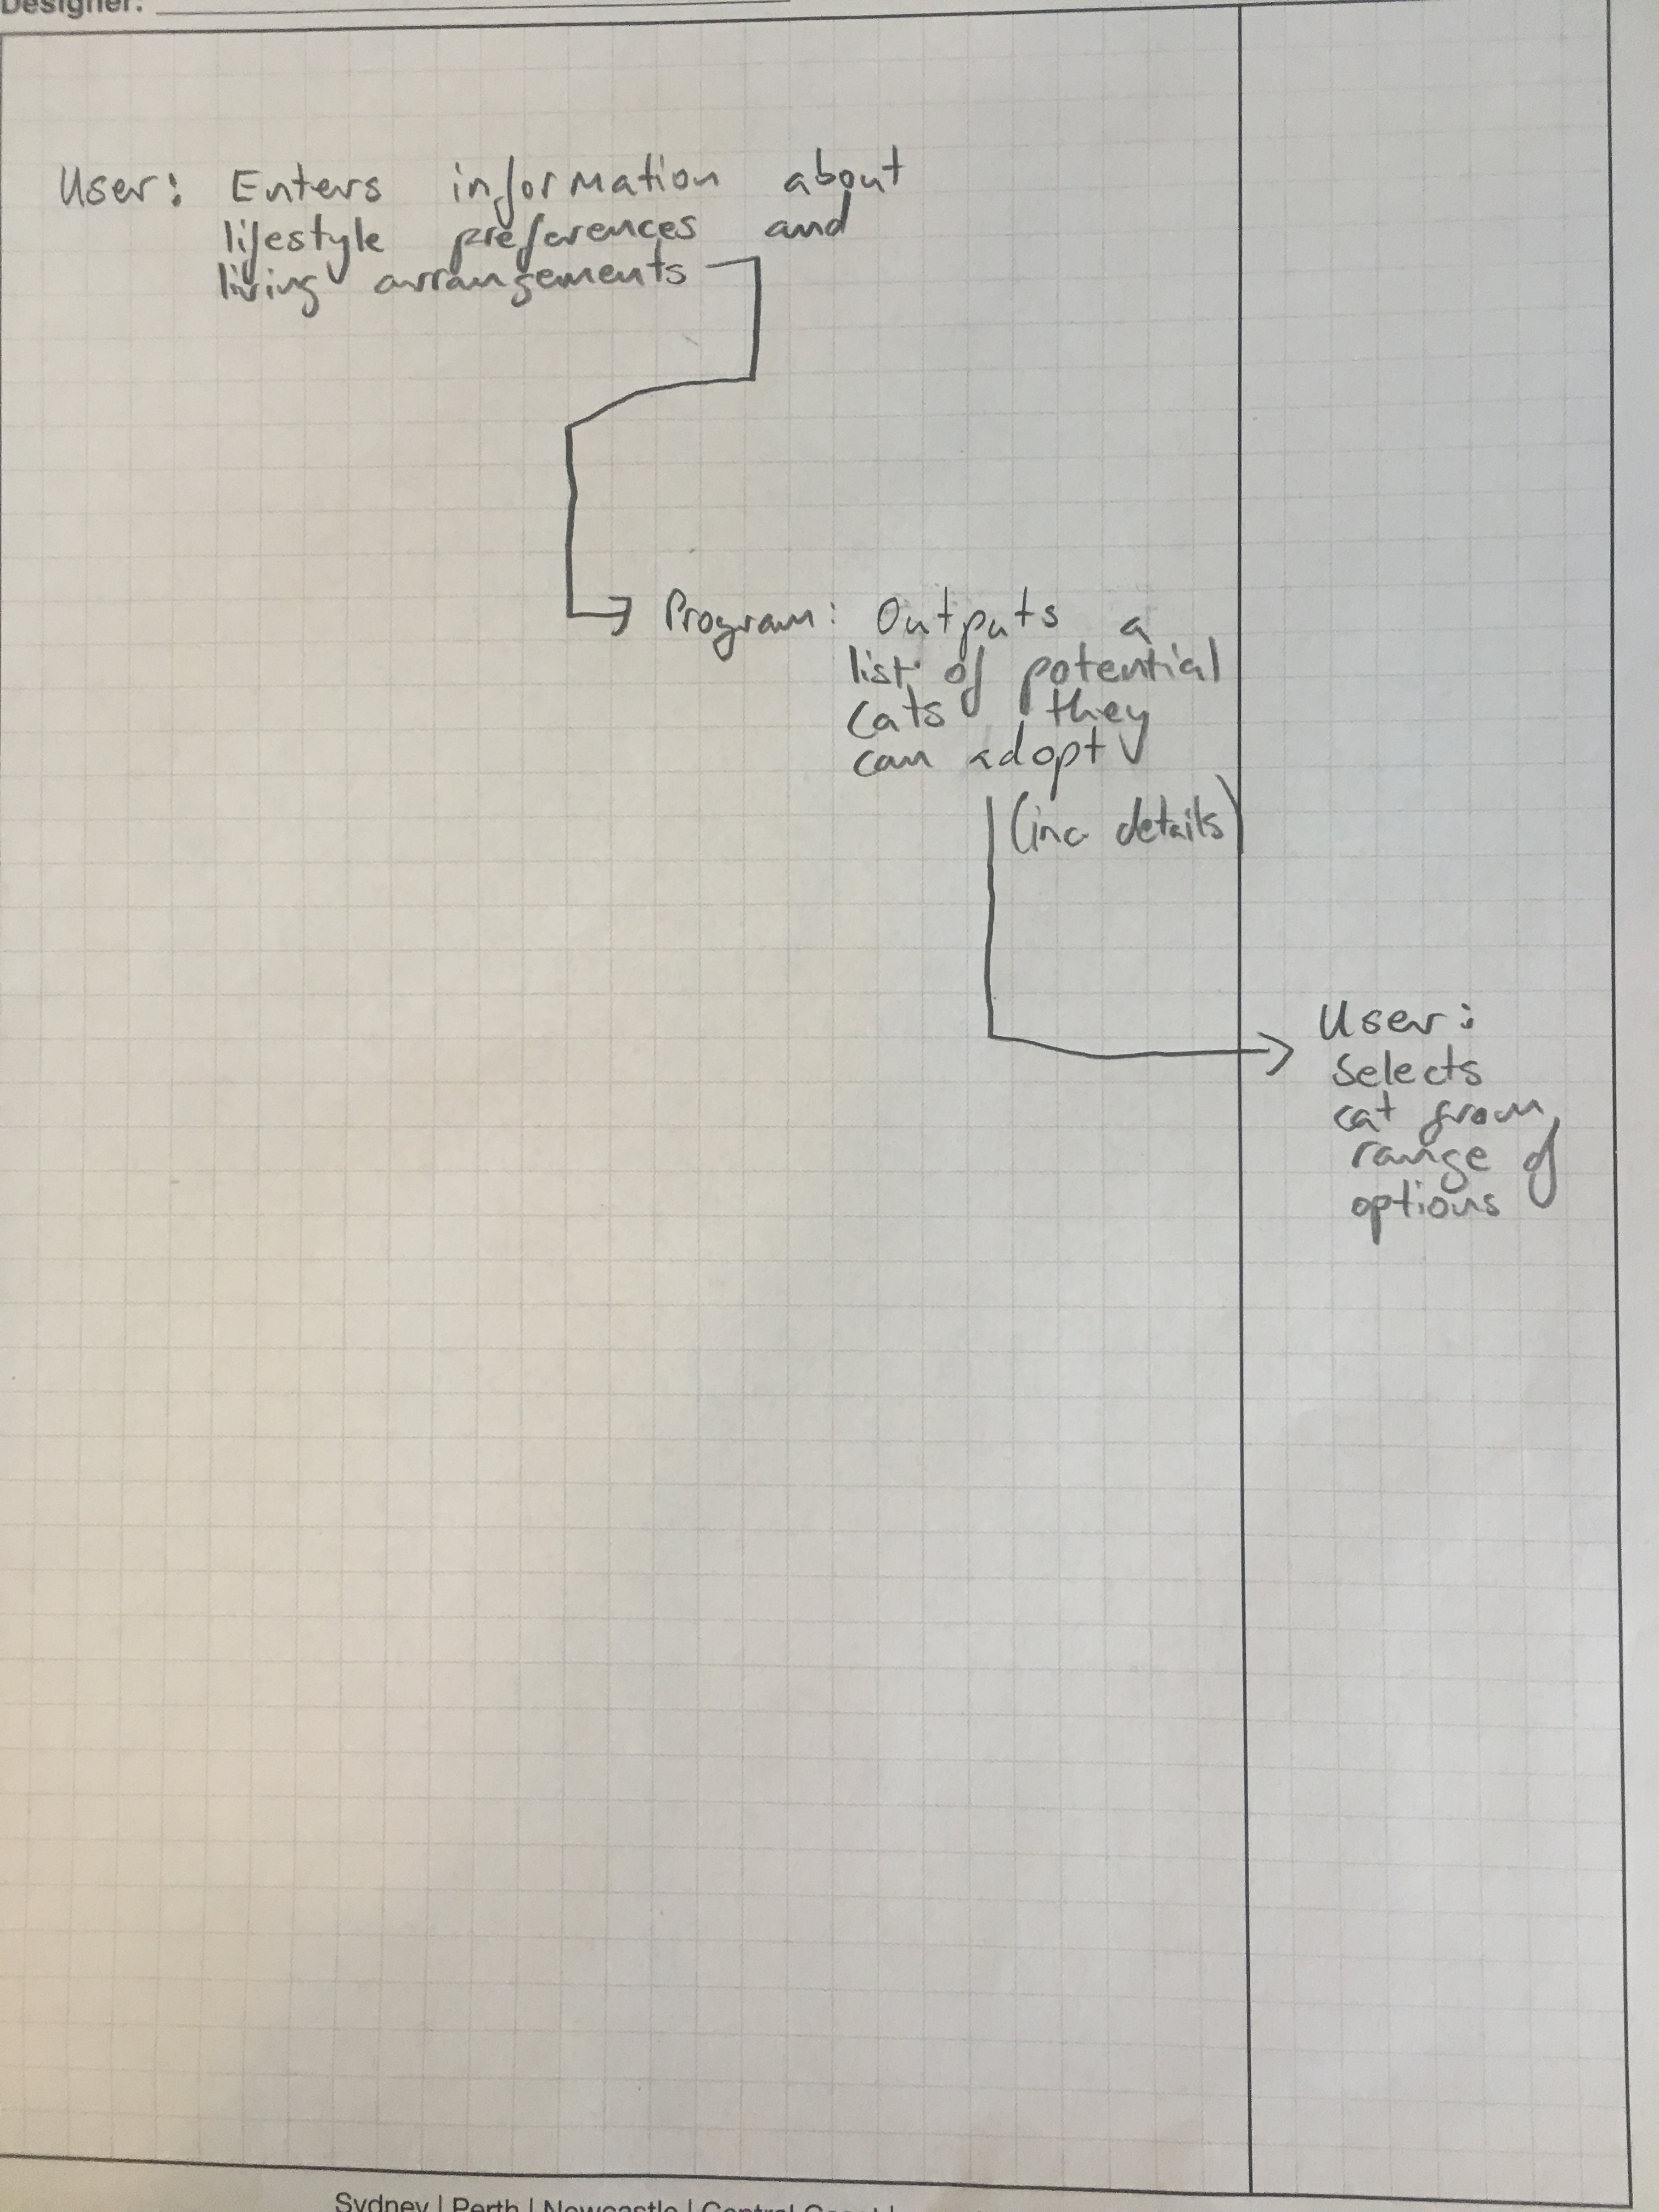 Designer:
User: Enters information about
lifestyle preferences and
living arrangements
Program: Outputs a
list of potential
cats they
can adopt
(inc details)
User:
Selects
cat from
range of
options
Sydney | Perth | Newcastle | Central Coast |